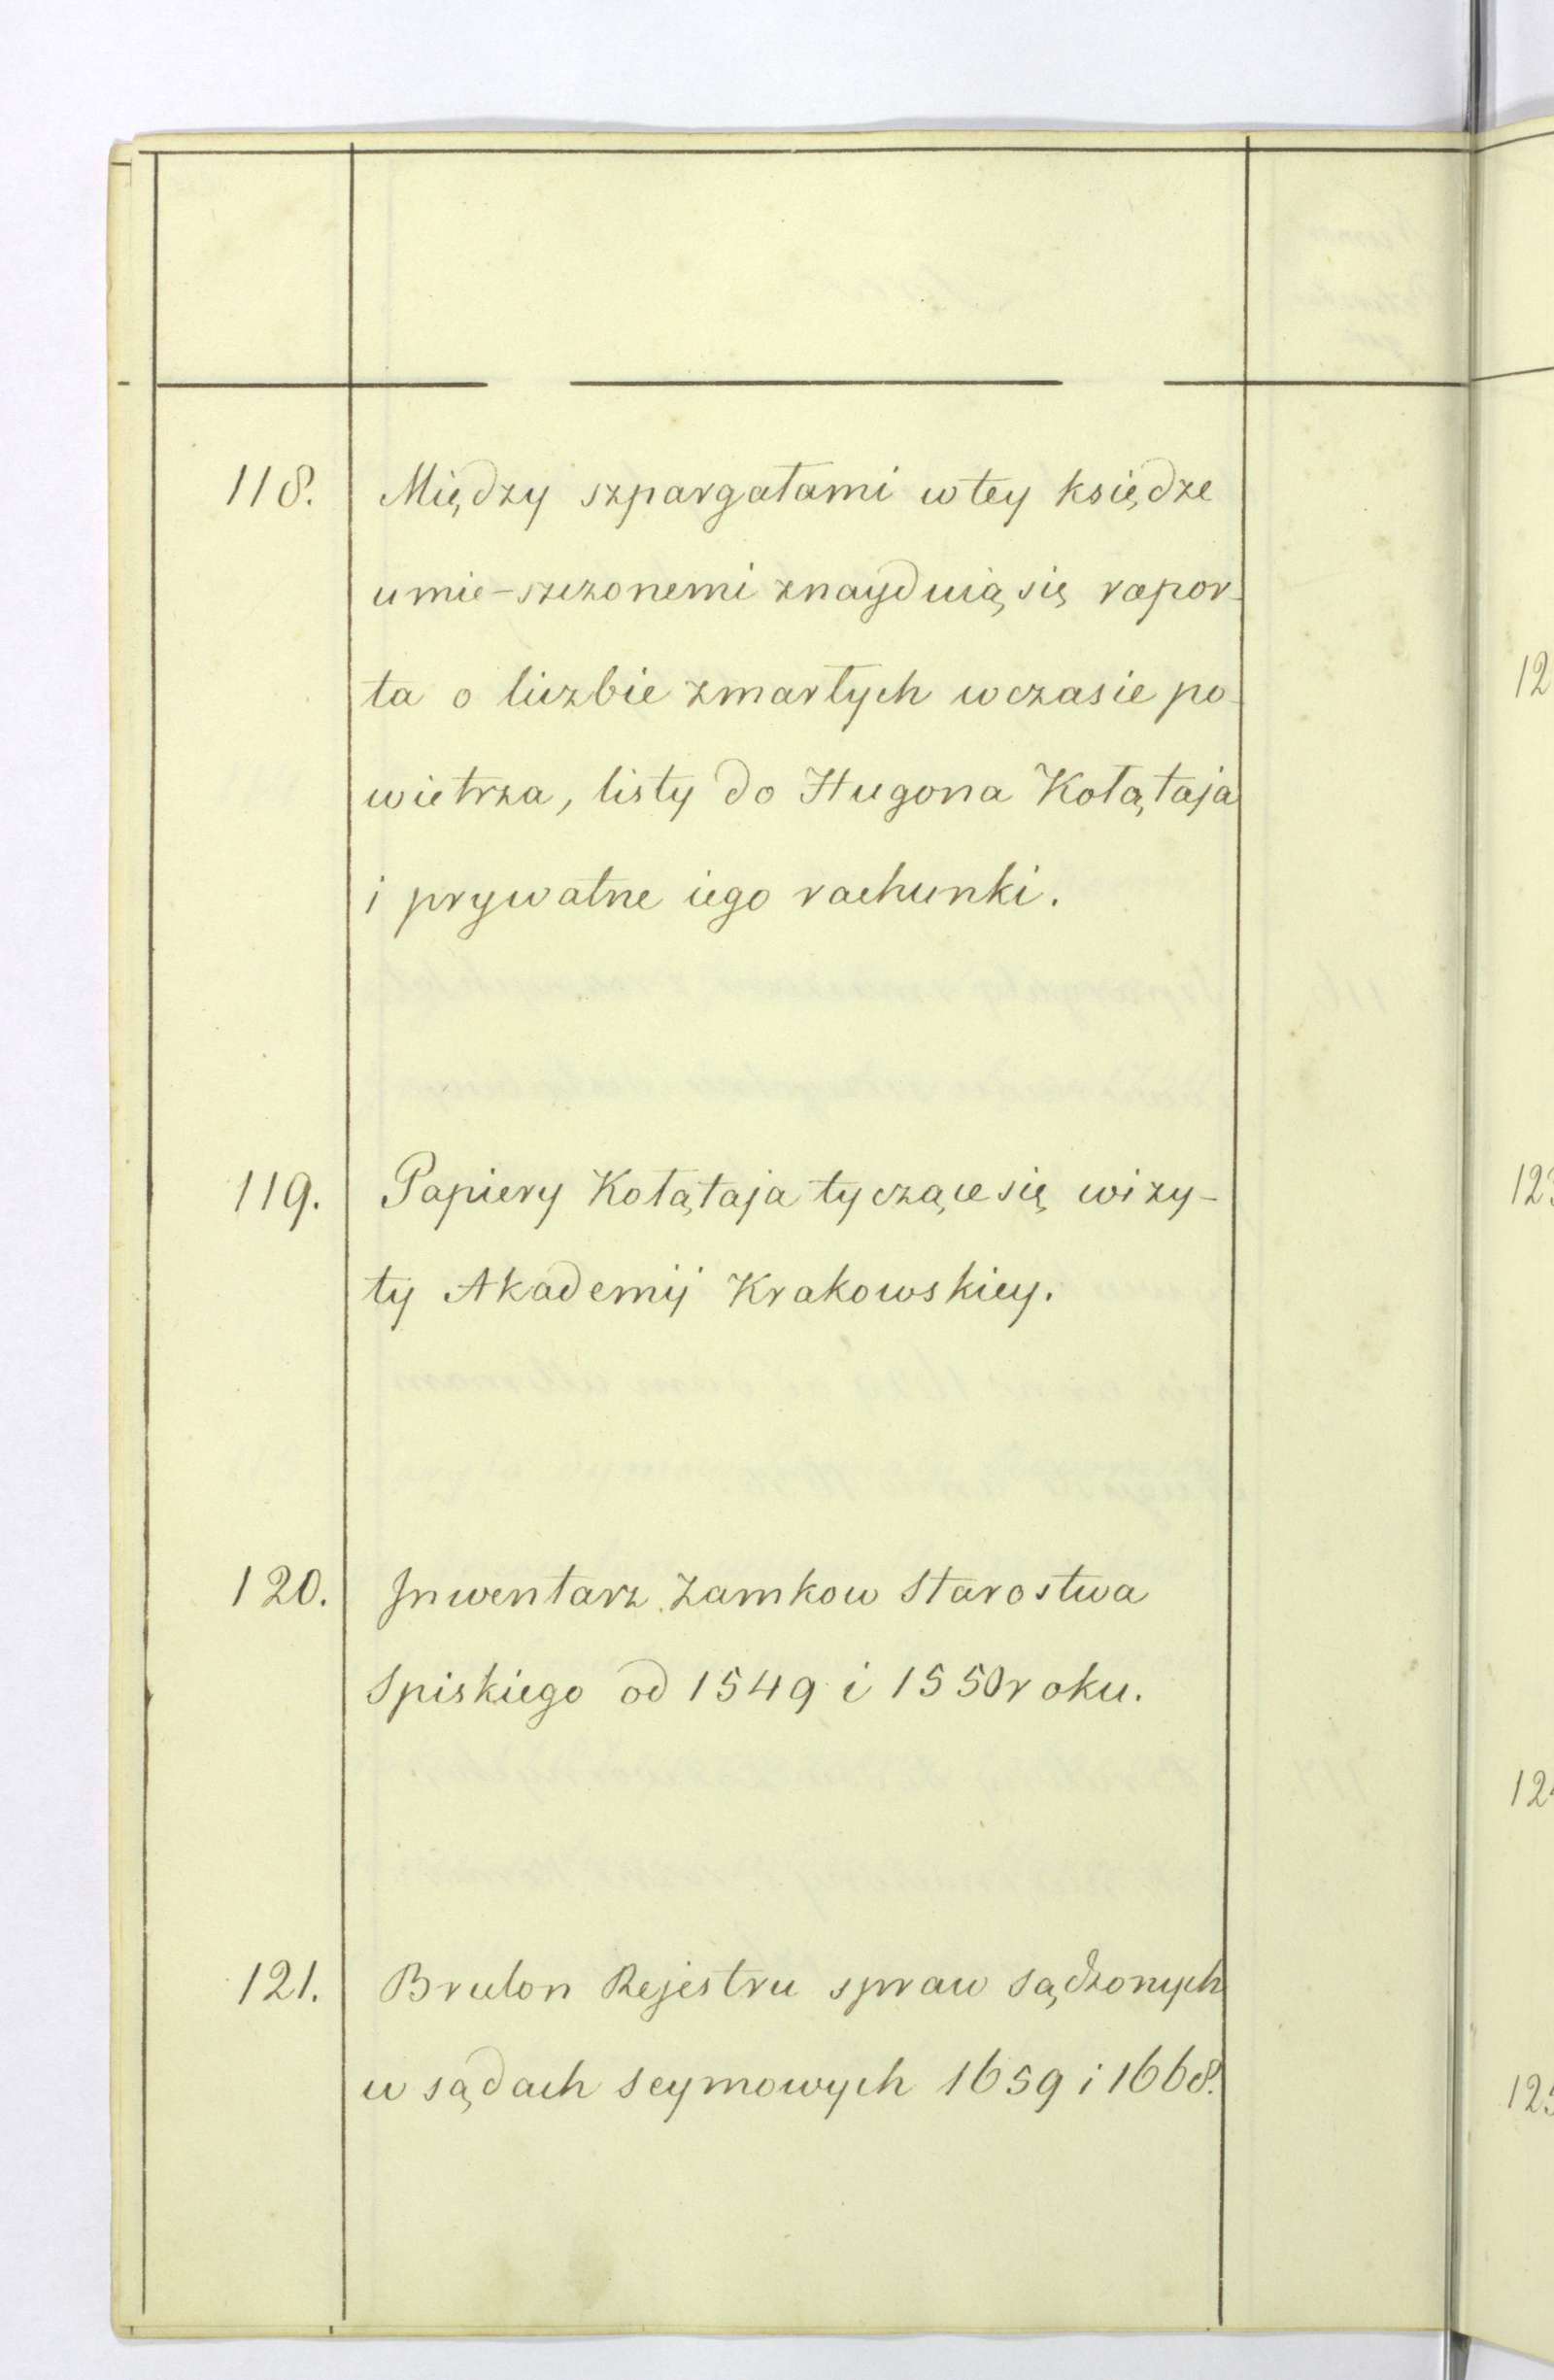 118. Między szpargałami w tey księdze
umie-szczonemi znayduią się rapor-
ta o liczbie zmarłych w czasie po-
wietrza, listy do Hugona Kołątaja
i prywatne iego rachunki.
119. Papiery Kołątaja tyczące się wizy-
ty Akademij Krakowskiey.
120. Inwentarz Zamkow Starostwa
Spiskiego od 1549 i 1550 roku.
121. Brulon Rejestru spraw sądzonych
w sądach seymowych 1659 i 1668.